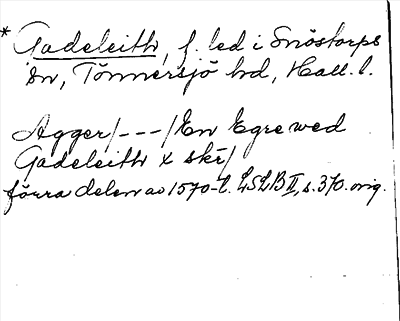 * Gadeleith, f. led i Snöstorps
sn, Tönnersjö hd, Hall. l.
Agger/---/En Egre wed
Gadeleith x skr/
förra delen av 1570-t. LSLB II, s. 370. orig.